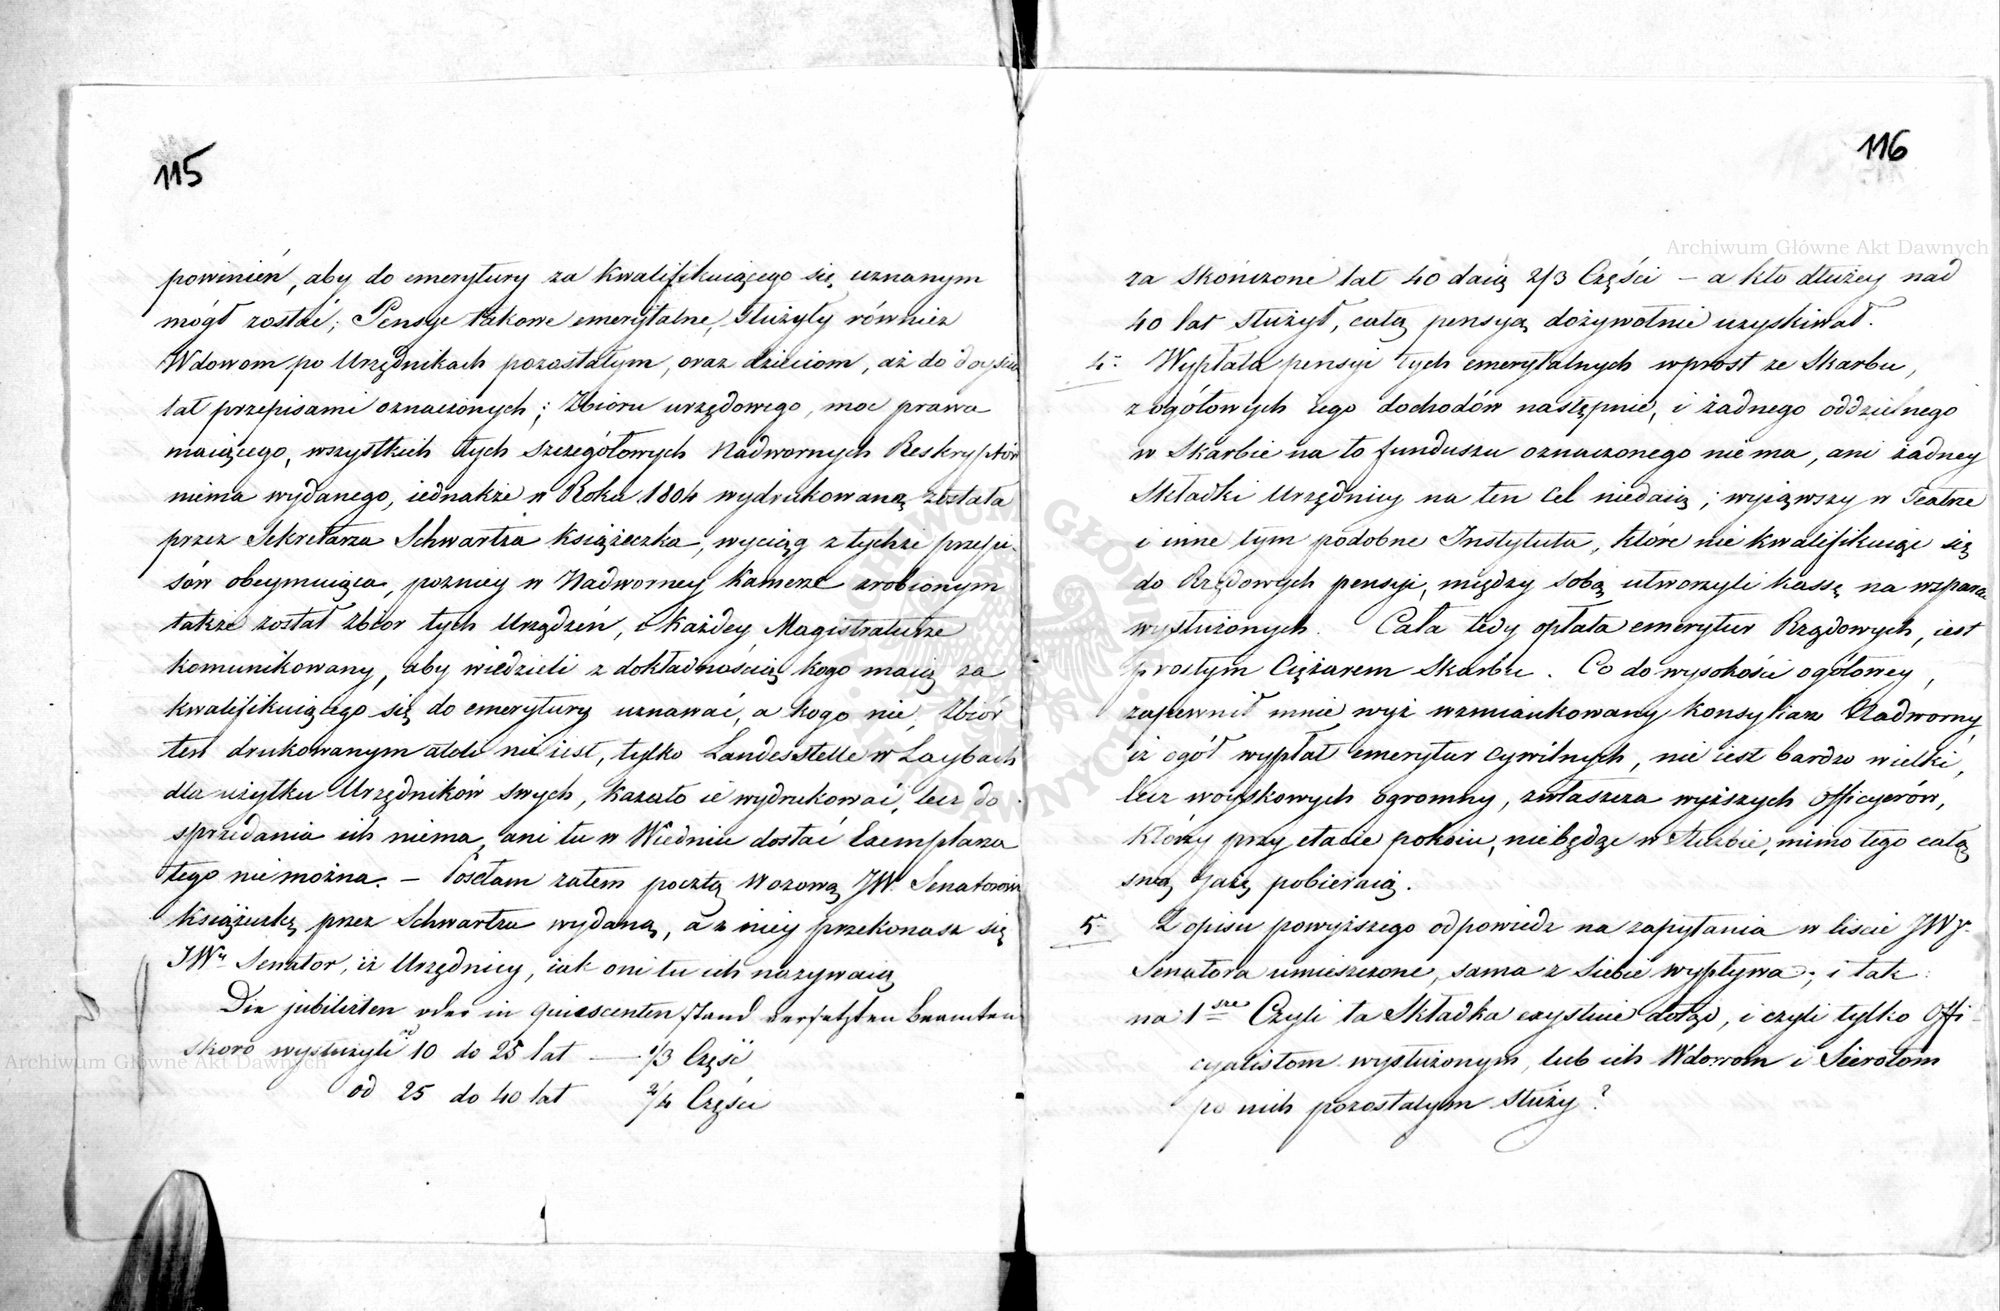 115
powinień, aby do emerytury za kwalifikuiącego się uznanym
mógł zostać; Pensye takowe emerytalne, służyły również
Wdowom po Urzędnikach pozostałym, oraz dzieciom, aż do
lat przepisami oznaczonych; Zbioru urzędowego, moc prawa
maiącego, wszystkich tych szczegółowych Nadwornych Reskryptów
niema wydanego, iednakże w Roku 1804 wydrukowaną została
przez Sekretarza Schwartza książeczka, wyciąg z tychże przepi-
sów obeymuiąca, pozniey w Nadworney Kamerze zrobionym
także został zbior tych Urządzeń, i każdey Magistraturze
komunikowany, aby wiedzieli z dokładnością kogo maią za
kwalifikuiącego się do emerytury uznawać, a kogo nie, Zbiór
ten drukowanym nie iest, tylko Landesstelle w Laybach
dla użytku Urzędników swych, kazało ie wydrukować, lecz do
sprzedania ich niema, ani tu w Wiedniu dostać Exemplarza
tego nie można. – Posełam zatem pocztą wozową JW Senatorowi
książeczkę przez Schwartza wydaną, a z niey przekonasz się
JWy Senator, iż Urzędnicy, iak oni tu ich nazywaią
Die jubilirten oder in quiescenten stand versetzten Beamten
skoro wysłużyli od 10 do 25 lat — 1/3 Część
od 25 do 40 lat 2/4 Części
116
za skończone lat 40 daią 2/3 Części – a kto dłużey nad
40 lat służył, całą pensyą dożywotnie uzyskiwał.
4. Wypłata pensyi tych emerytalnych wprost ze Skarbu,
z ogółowych iego dochodów następnie, i żadnego oddzielnego
w Skarbie na to funduszu oznaczonego nie ma, ani żadney
Składki Urzędnicy na ten cel niedaią; wyiąwszy w Teatrze
i inne tym podobne Instytuta, które nie kwalifikuiąc się
do Rządowych pensyi, między sobą utworzyli kassę na
wysłużonych. Cała tedy opłata emerytur Rządowych, iest
prostym Ciężarem Skarbu. Co do wysokości ogółowey,
zapewnił mnie wyż wzmiankowany Konsyliarz Nadworny,
iż ogół wypłat emerytur cywilnych, nie iest bardzo wielki,
lecz woyskowych ogromny, zwłaszcza wyższych Officyerów,
którzy przy etacie pokoiu, niebędąc w służbie, mimo tego całą
swą gażę pobieraią.
5. Z opisu powyższego odpowiedz na zapytania w liscie JWgo
Senatora umieszczone, sama z siebie wypływa; i tak:
na 1sze Czyli ta Składka exystuie dotąd, i czyli tylko Offi-
cyalistom wysłużonym, lub ich Wdowom i Sierotom
po nich pozostałym służy?
Archiwum Główne Akt Dawnych
Archiwum Główne Akt Dawnych